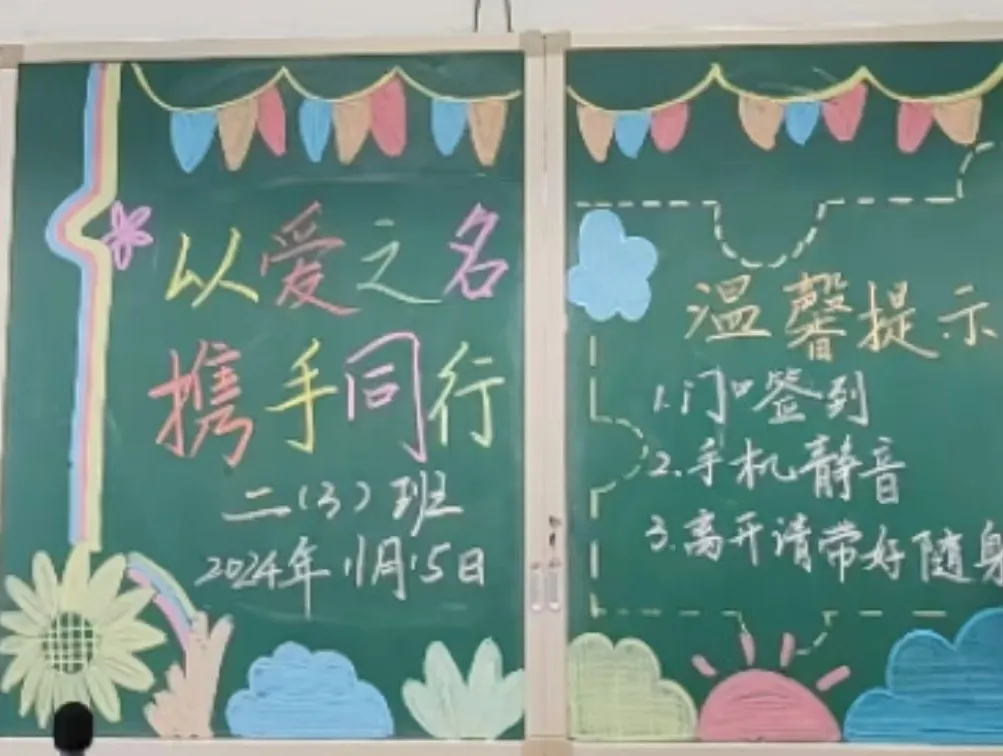 以爱之名
携手同行
二(3)班
2024年11月15日
温馨提示
1.门口签到
2.手机静音
3.离开请带好随身